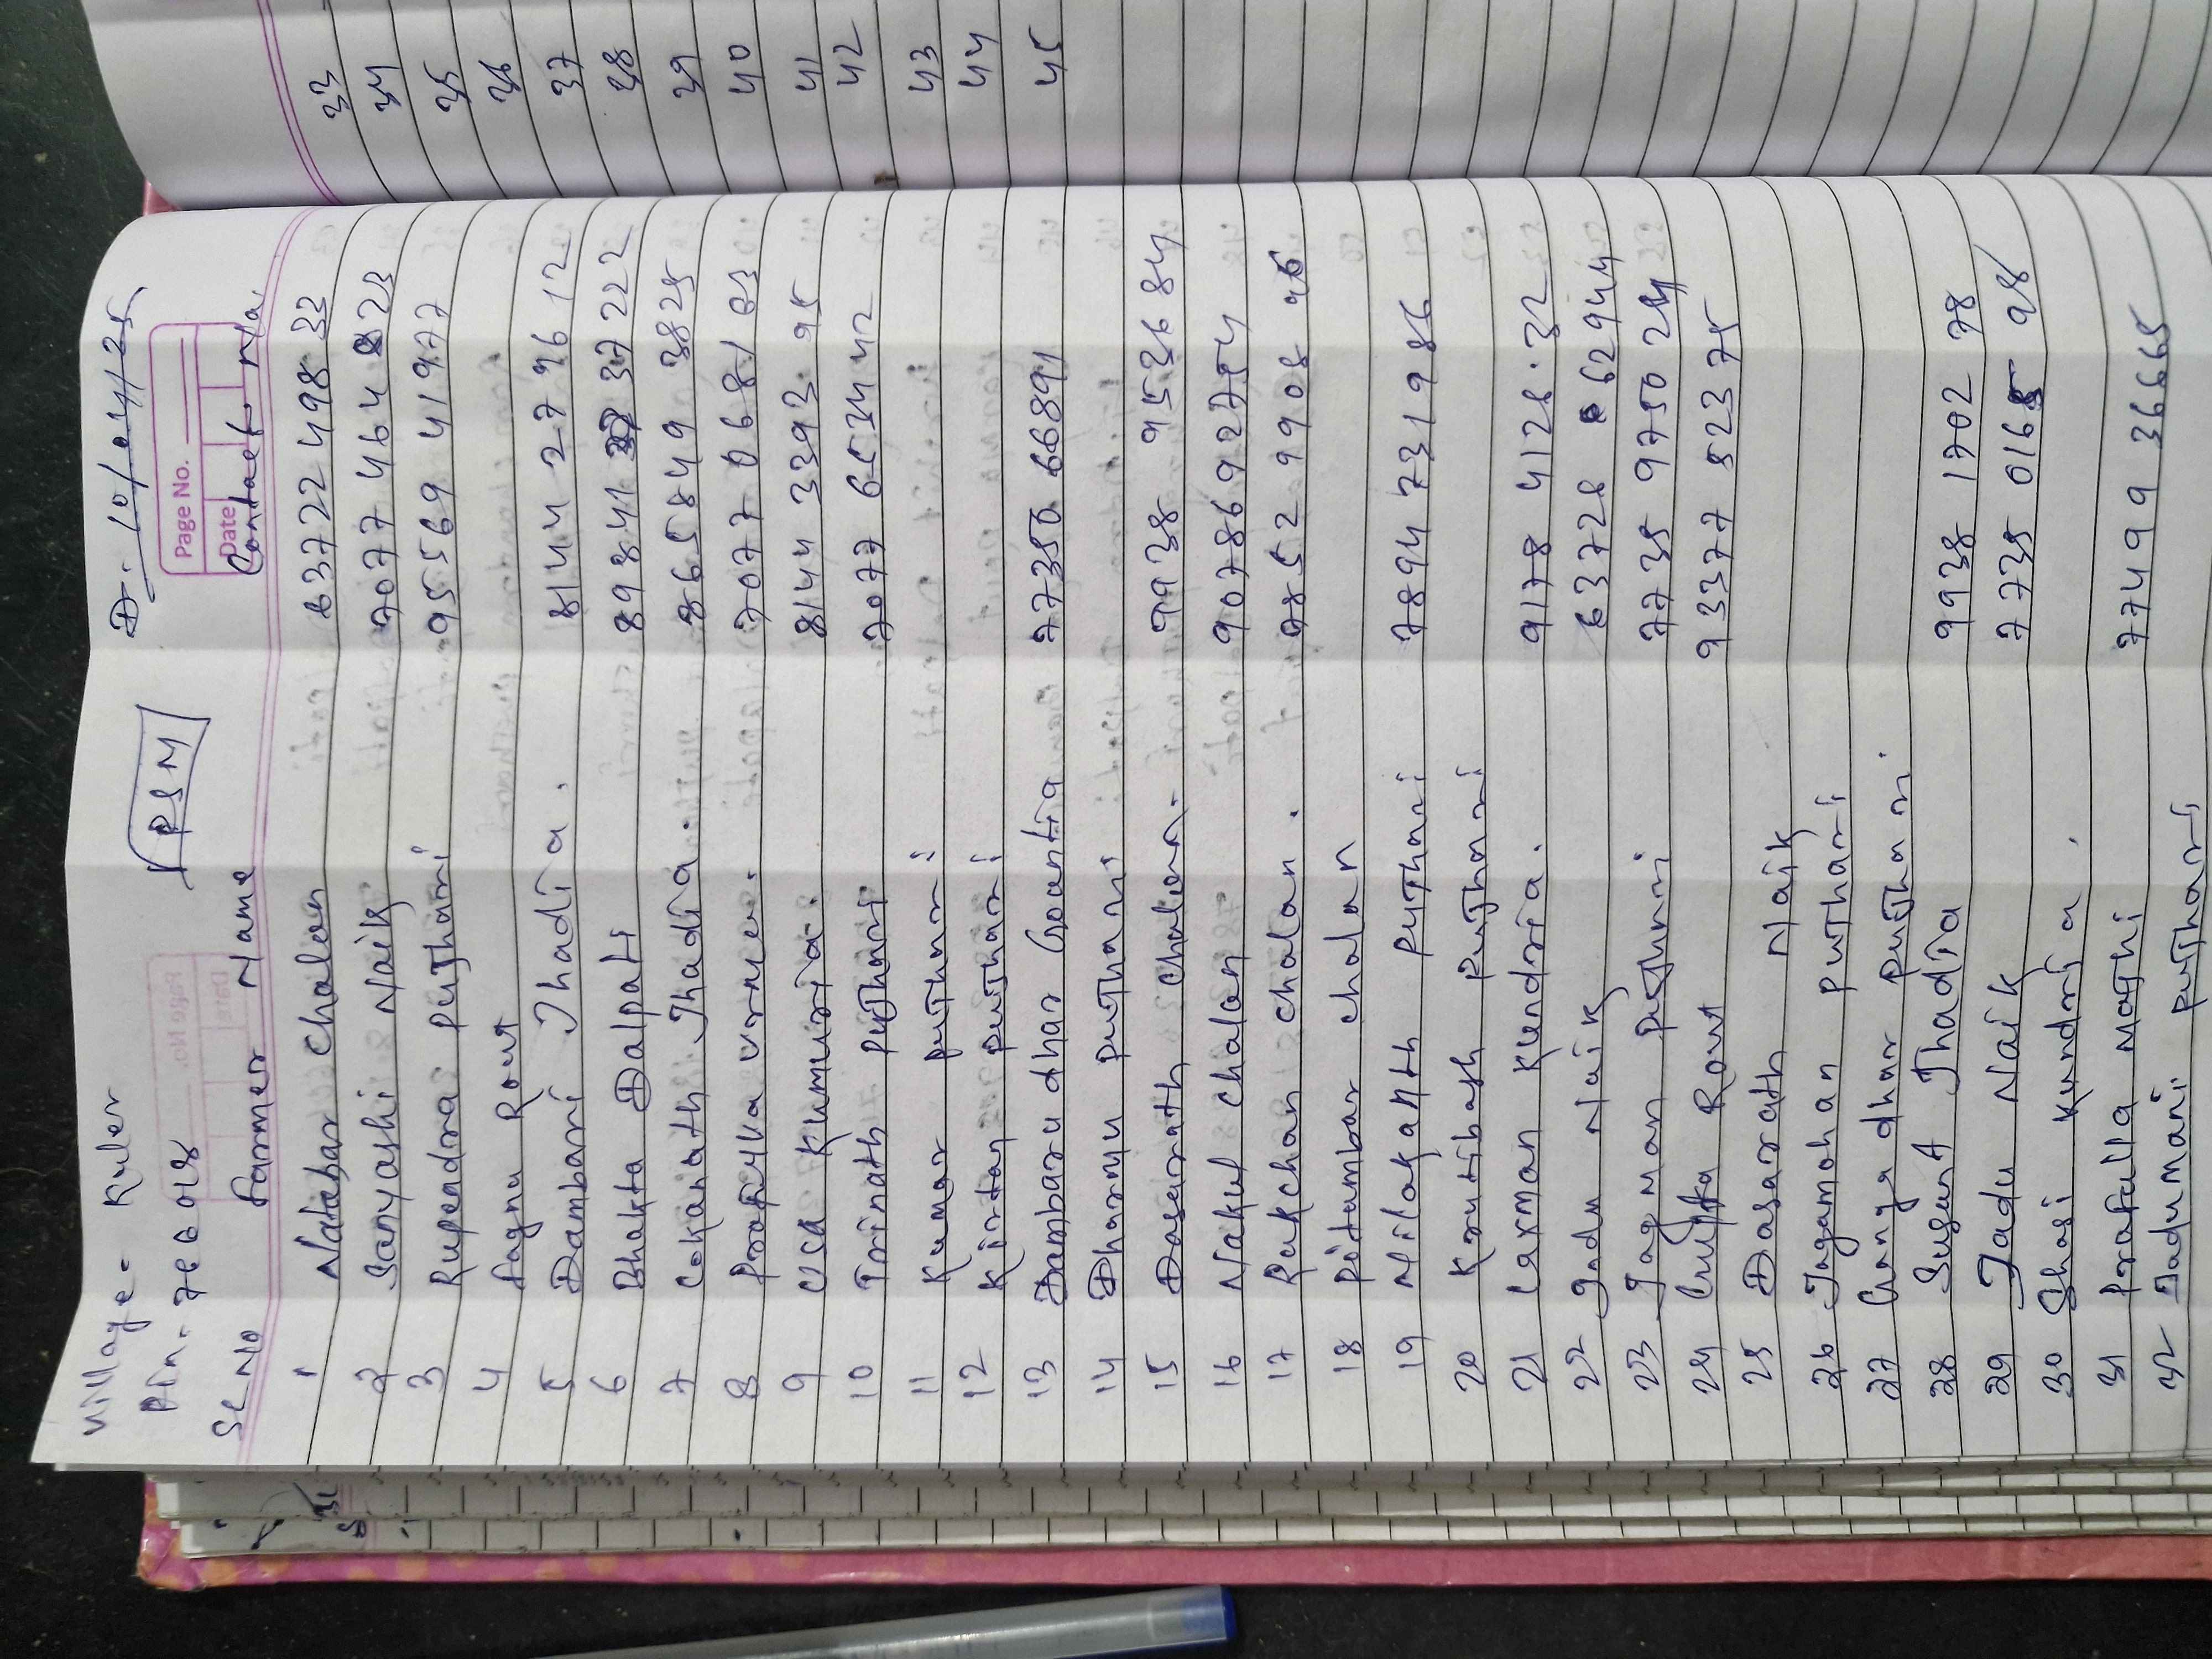 Village - Kuler
D:- 10/04/25
Pin - 766018
PSM
Page No.
Date
SL NO Farmer Name Contact No
1 Natabar Chalan 63722 498 33
2 Sanyashi Naik 7077 464 823
3 Rupendra pujhari 95569 41977
4 Fagnu Rout
5 Dambari Jhadia. 8144 27796 12
6 Bhakta Dalpati 89841 37222
7 Lokanath Jhadia. 8658849 3825
8 7077 0681 83
9 Usa Kumuria. 8144 3393 95
10 Trinath pujhari 7077 6534 42
11 Kumar pujhari
12 Kirtan pujhari
13 Dambarudhar Goantia 77350 66891
14 Dharmu pujhari
15 Dasarath Chalan. 9938 9536 84
16 Nakul Chalan 9078692754
17 Rukchan chalan. 7852 9908
18 pitambar chalan
19 Nilakanth pujhari 7894 7319 86
20 Krutibash pujhari
21 Laxman Kundria. 9178 4128.32
22 Indu Naik 63728 62944
23 Jagman pujhari 7735 9750 24
24 Rout 93377 52375
25 Dasarath Naik
26 Jagamohan pujhari
27 Gangadhar pujhari.
28 Susant Jhadia 9938 1702 78
29 Jadu Naik 7735 0168 98
30 Shasi Kundria.
31 Prafulla Majhi 77499 36665
32 Jadumani pujhari
33
34
35
36
37
38
39
40
41
42
43
44
45